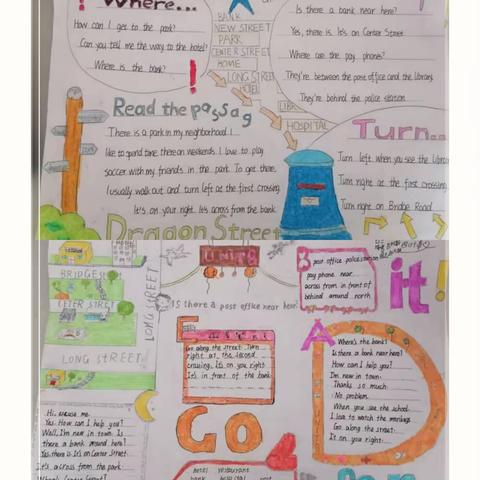 Where...
How can I get to the park?
Can you tell me the way to the hotel?
Where is the bank?
BANK
NEW STREET
PARK
CENTER STREET
HOME
LONG STREET
HOTEL
HOSPITAL
Is there a bank near here?
Yes, there is. It's on Center Street.
Where are the pay phones?
They're between the post office and the library.
They're behind the police station
Read the passag
There is a park in my neighborhood. I
like to spend time there on weekends. I love to play
soccer with my friends in the park. To get there,
I usually walk out and turn left at the first crossing.
It's on your right. It's across from the bank.
Dragon Street
Turn...
Turn left when you see the
Turn right at the first crossing.
Turn right on Bridge Road
BRIDGE S
CETER STREET
LONG STREET
LONG STREET
UNIT8
IS there a post office near here?
post office police station
pay phone near
across from in front of
behind around north
it!
Go along the street. Turn
right at the second
crossing. It's on you right
It's in front of the bank.
GO
Where's the bank?
Is there a bank near here?
How can I help you?
I'm new in town.
Thanks so much.
No problem.
When you see the school.
I love to watch the monkeys
Go along the street.
It on you right.
Hi, excuse me.
Yes. How can I help you?
Well, I'm new in town. Is
there a bank around here?
Yes there is. It's on Center Street.
It's across from the park.
hotel restaurant